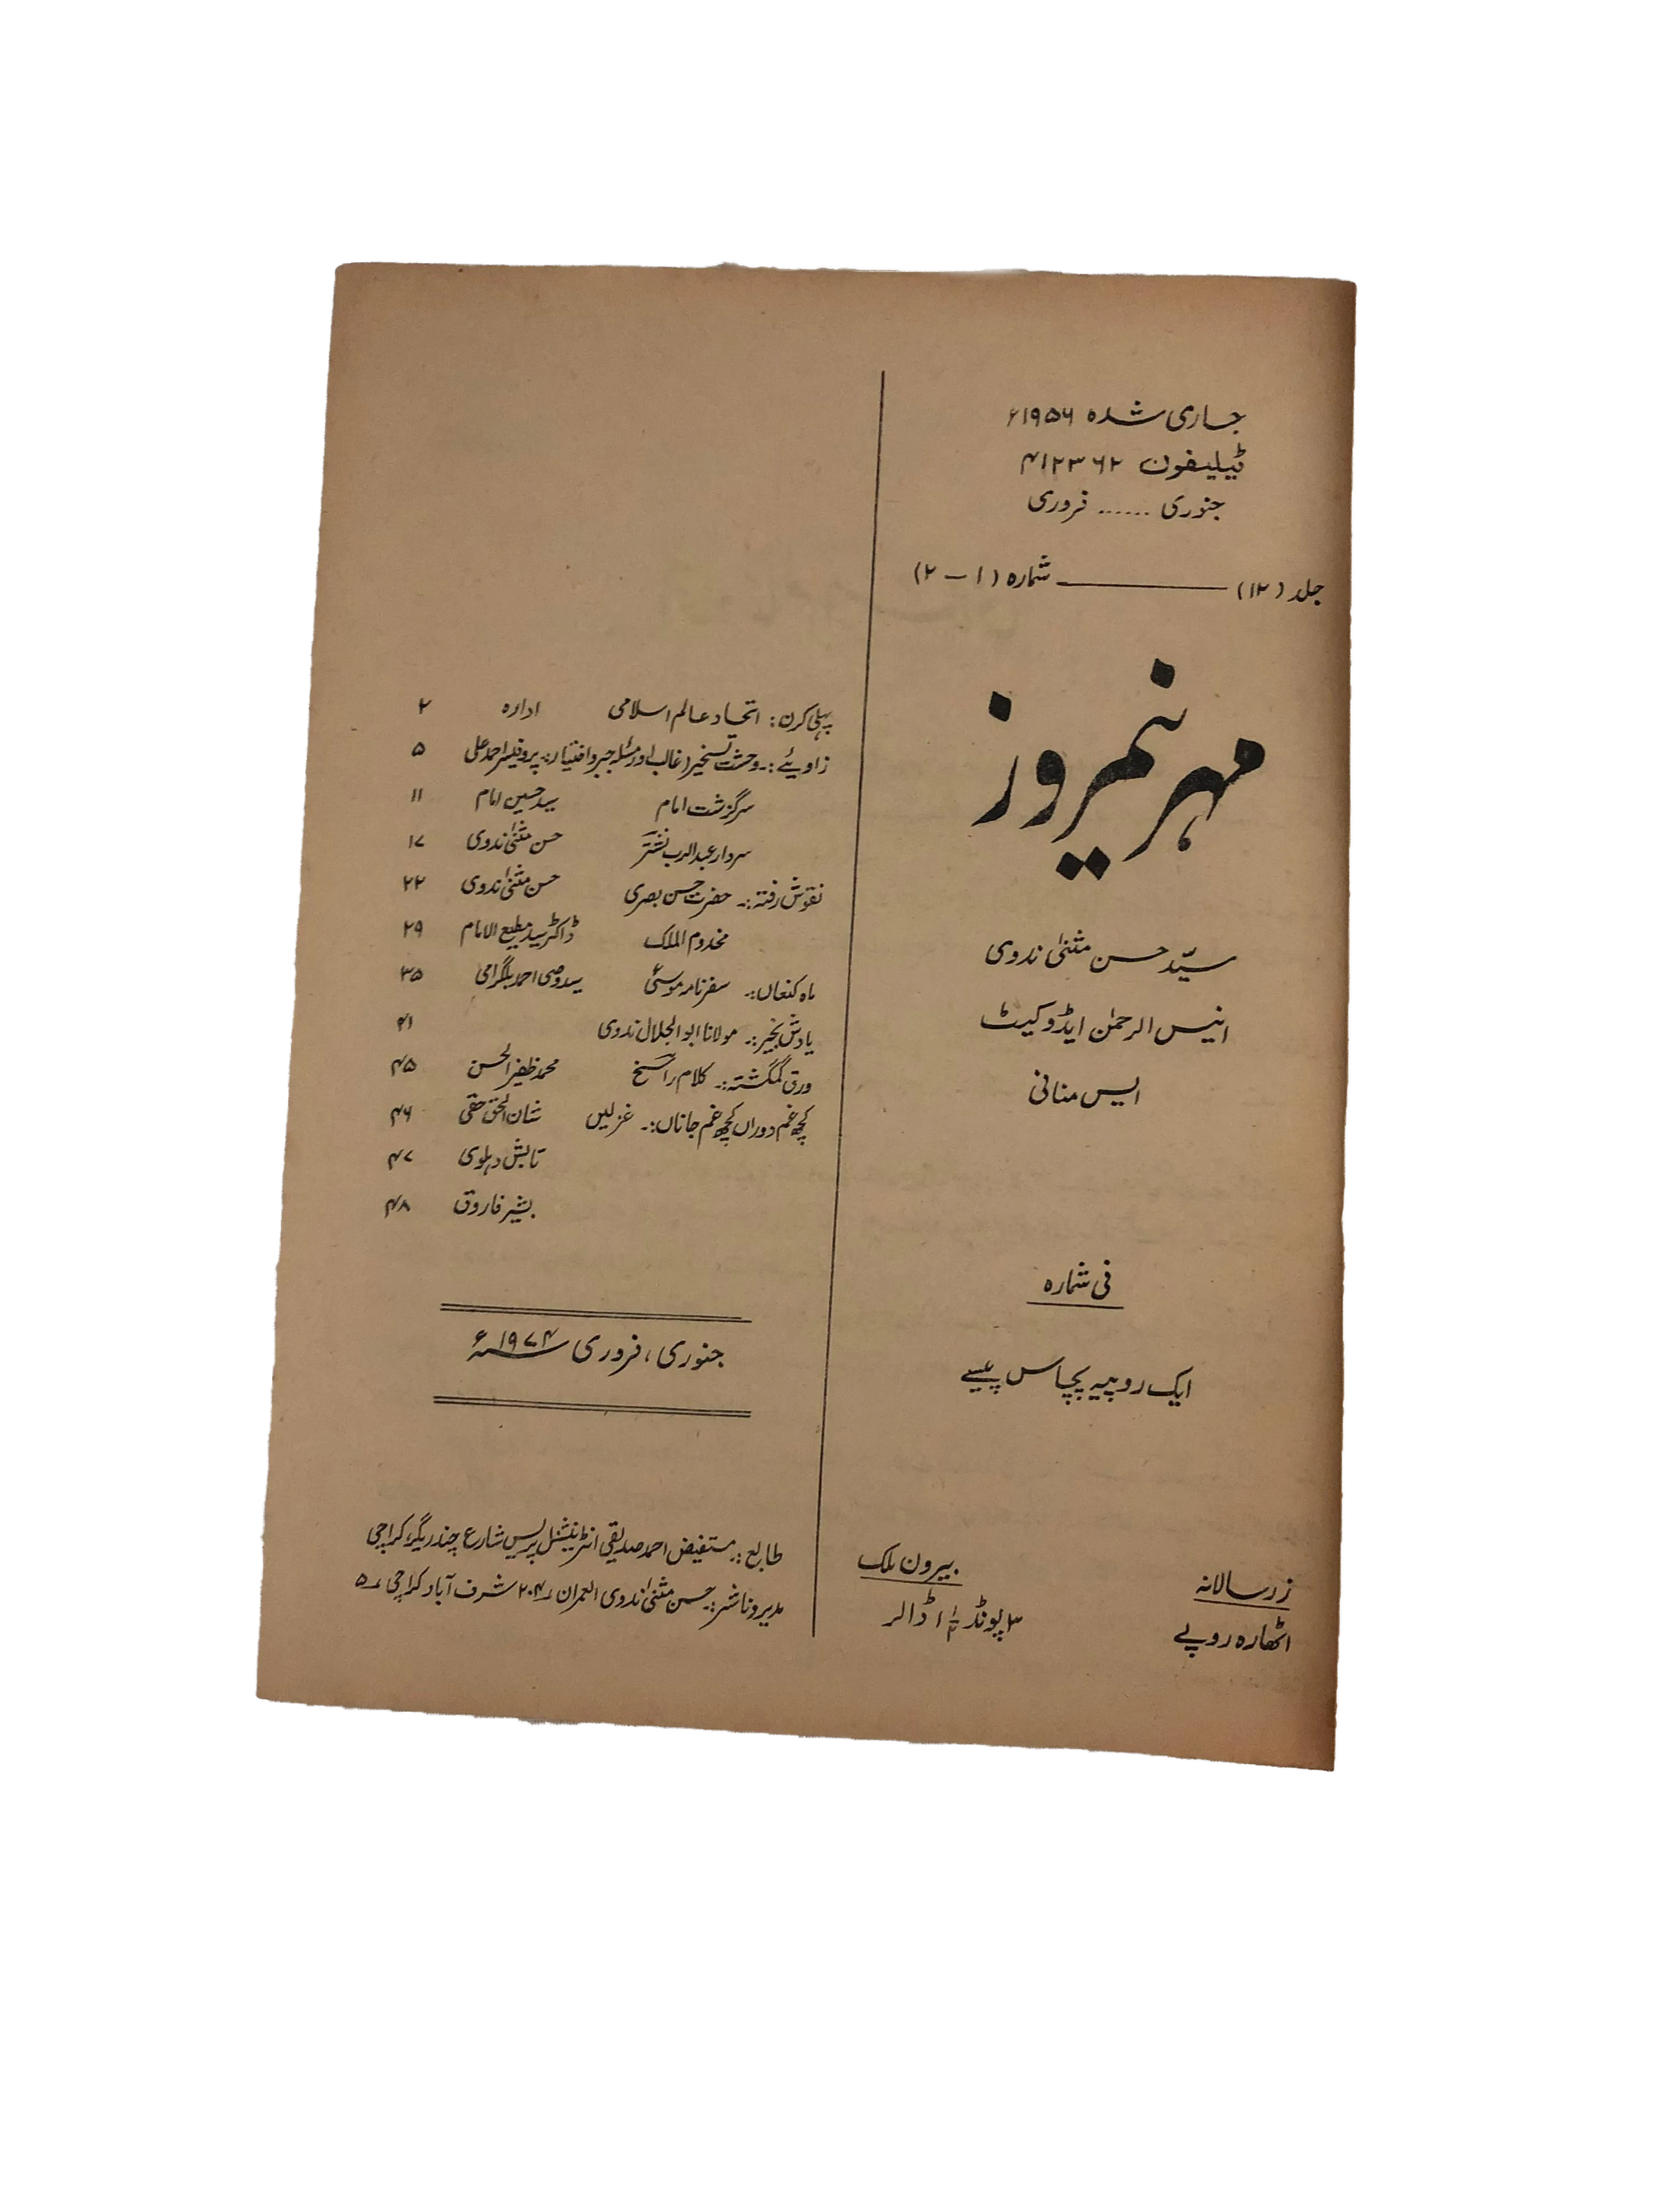 جاری شدہ ۱۹۵۶ء
ٹیلیفون ۴۱۲۳۶۲
جنوری ...... فروری
جلد (۱۲) ـــــــــ شمارہ (۱ – ۲)
مہر نیمروز
سیّد حسن مثنیٰ ندوی
انیس الرحمٰن ایڈوکیٹ
ایس منانی
فی شمارہ
ایک روپیہ پچاس پیسے
زرسالانہ
اٹھارہ روپے
بیرون ملک
۳ پونڈ ڈالر
پہلی کرن: اتحاد عالم اسلامی ادارہ ۲
زاویئے:۔ وحشت تسخیر (غالب اور مسئلہ جبر و اختیار:۔ پروفیسر احمد علی ۵
سرگزشت امام سید حسین امام ۱۱
سردار عبدالرب نشتر حسن مثنیٰ ندوی ۱۷
نقوش رفتہ:۔ حضرت حسن بصری حسن مثنیٰ ندوی ۲۲
مخدوم الملک ڈاکٹر سید مطیع الامام ۲۹
ماہ کنعاں:۔ سفرنامہ موسیٰؑ سید وصی احمد بلگرامی ۳۵
یادش بخیر:۔ مولانا ابوالجلال ندوی ۴۱
ورق گمگشتہ:۔ کلام راسخ محمد ظفیر الحسن ۴۵
کچھ غم دوراں کچھ غم جاناں:۔ غزلیں شان الحق حقی ۴۶
تابش دہلوی ۴۷
بشیر فاروق ۴۸
جنوری، فروری ۱۹۷۴ء
طابع:۔ مستفیض احمد صدیقی انٹرنیشنل پریس شارع چندریگر، کراچی
مدیر و ناشر:۔ حسن مثنیٰ ندوی العمران ۲۰۴ شرف آباد کراچی ۵